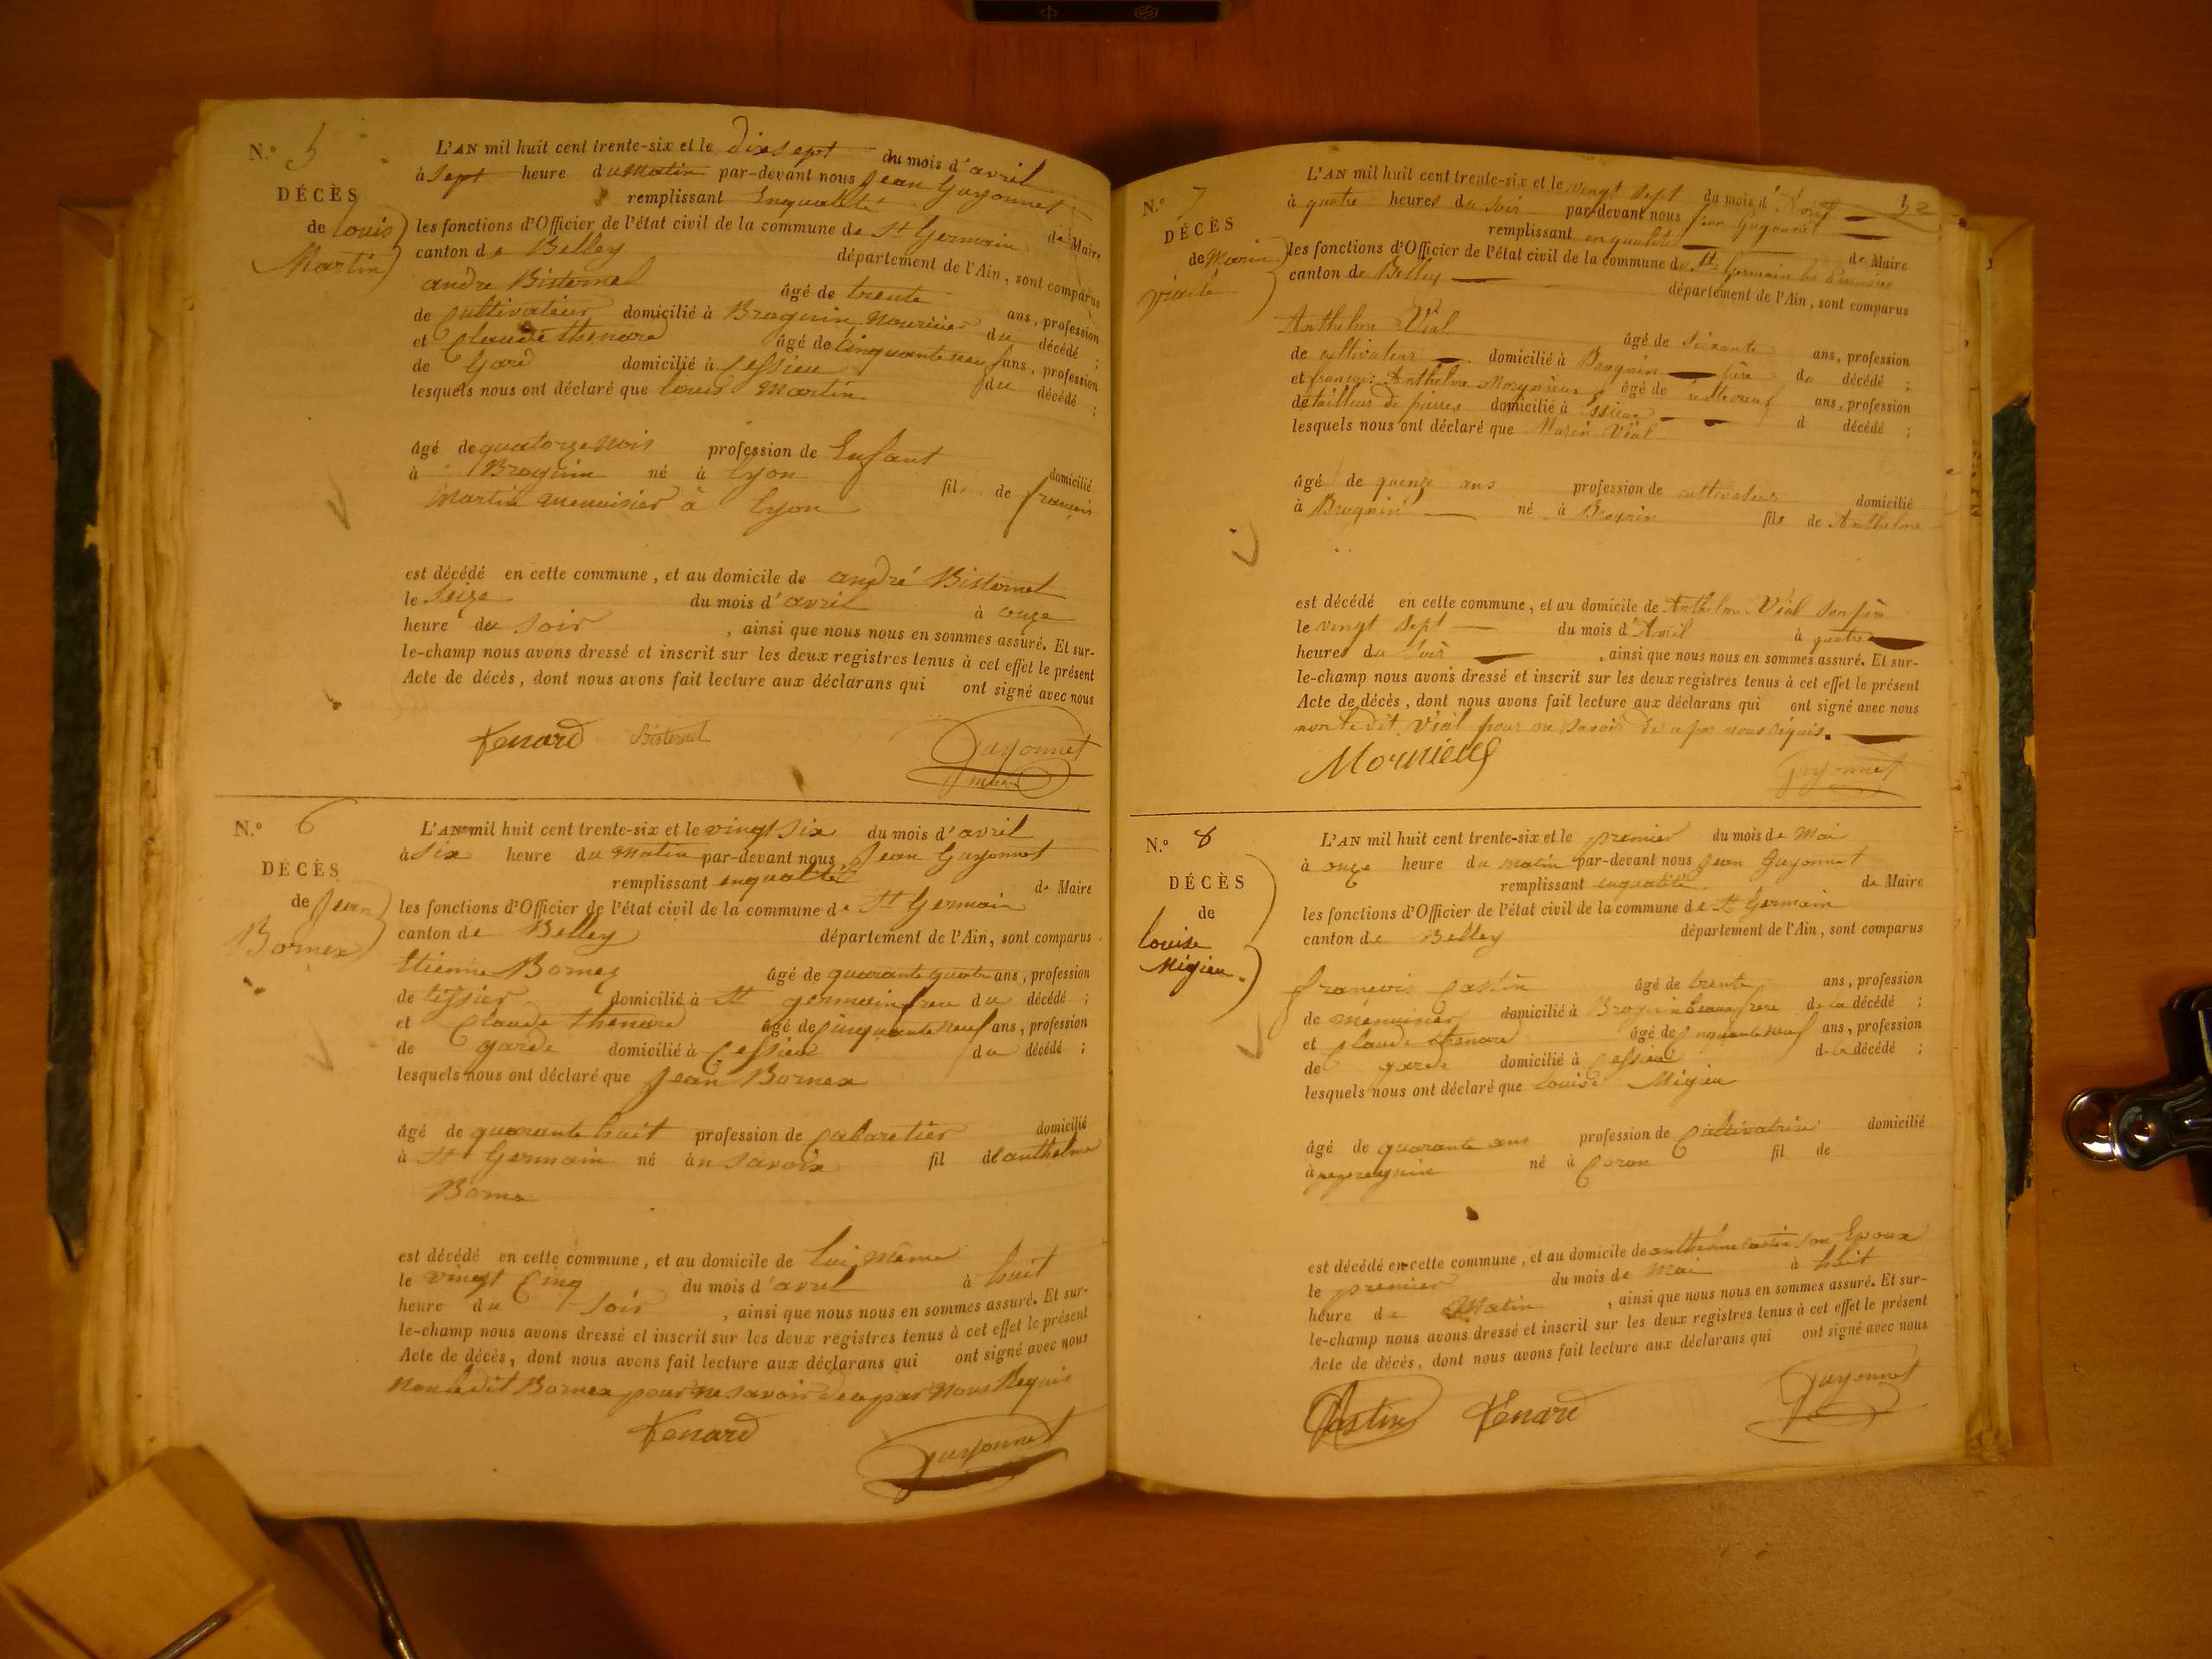 N.° 5
DÉCÈS
de Louis
Martin
L'AN mil huit cent trente-six et le dix sept du mois d'avril
à sept heure du Matin par-devant nous Jean Guyonnet
remplissant Enqualité de Maire
les fonctions d'Officier de l'état civil de la commune de St Germain
canton de Belley département de l'Ain, sont comparus
andré Bisternel âgé de trente ans, profession
de Cultivateur domicilié à Brognin Nouricier du décédé ;
et Claude thenard âgé de Cinquante neuf ans, profession
de Garde domicilié à Cessieu du décédé ;
lesquels nous ont déclaré que louis Martin
âgé de quatorze Mois profession de Enfant domicilié
à Brognin né à Lyon fils de francois
Martin Menuisier à Lyon
est décédé en cette commune, et au domicile de andré Bisternel
le Seize du mois d'avril à onze
heure du Soir , ainsi que nous nous en sommes assuré. Et sur-
le-champ nous avons dressé et inscrit sur les deux registres tenus à cet effet le présent
Acte de décès, dont nous avons fait lecture aux déclarans qui ont signé avec nous
Tenard Bisternel Guyonnet
N.° 6
DÉCÈS
de Jean
Bornex
L'AN mil huit cent trente-six et le vingt six du mois d'avril
à Six heure du Matin par-devant nous Jean Guyonnet
remplissant enqualité de Maire
les fonctions d'Officier de l'état civil de la commune de St Germain
canton de Belley département de l'Ain, sont comparus
Etienne Bornex âgé de quarante quatre ans, profession
de tissier domicilié à St germain frere du décédé ;
et Claude thenard âgé de Cinquante neuf ans, profession
de garde domicilié à Cessieu du décédé ;
lesquels nous ont déclaré que Jean Bornex
âgé de quarante huit profession de Cabaretier domicilié
à St Germain né àn Savoix fil de anthelme
Borne
est décédé en cette commune, et au domicile de Lui Même
le vingt Cinq du mois d'avril à huit
heure du Soir , ainsi que nous nous en sommes assuré. Et sur-
le-champ nous avons dressé et inscrit sur les deux registres tenus à cet effet le présent
Acte de décès, dont nous avons fait lecture aux déclarans qui ont signé avec nous
Non ledit Bornex pour ne savoir de ce par Nous Requis
Tenard
Guyonnet
52
N.° 7
DÉCÈS
de Marin
L'AN mil huit cent trente-six et le vingt sept du mois d'Avril
à quatre heures du Soir par-devant nous Jean Guyonnet
remplissant en qualité de Maire
les fonctions d'Officier de l'état civil de la commune de St Germain les Paroisses
canton de Belley département de l'Ain, sont comparus
Anthelme Vial âgé de Soixante ans, profession
de cultivateur domicilié à Brognin père du décédé ;
et françois Anthelme Mornieux âgé de ans, profession
de tailleur de pierres domicilié à Essieu d décédé ;
lesquels nous ont déclaré que Marin Vial
âgé de quinze ans profession de cultivateur domicilié
à Brognin né à Brognin fils de Anthelme
est décédé en cette commune, et au domicile de Anthelme Vial son père
le vingt Sept du mois d'Avril à quatre
heures du Soir , ainsi que nous nous en sommes assuré. Et sur-
le-champ nous avons dressé et inscrit sur les deux registres tenus à cet effet le présent
Acte de décès, dont nous avons fait lecture aux déclarans qui ont signé avec nous
non le dit Vial pour ne savoir de ce par nous Réquis.
Mornieux Guyonnet
N.° 8
DÉCÈS
de
Louise
Migieu
L'AN mil huit cent trente-six et le premier du mois de Mai
à onze heure du matin par-devant nous Jean Guyonnet
remplissant enqualité de Maire
les fonctions d'Officier de l'état civil de la commune de St Germain
canton de Belley département de l'Ain, sont comparus
françois Castin âgé de trente ans, profession
de menuisier domicilié à Brognin beaufrere de la décédé ;
et Claude thenard âgé de Cinquante neuf ans, profession
de garde domicilié à Cessieu de la décédé ;
lesquels nous ont déclaré que Louise Migieu
âgé de quarante ans profession de Cultivatrice domicilié
à né à Coron fil de
est décédé en cette commune, et au domicile de anthelme Castin son Epoux
le premier du mois de Mai à huit
heure de Matin , ainsi que nous nous en sommes assuré. Et sur-
le-champ nous avons dressé et inscrit sur les deux registres tenus à cet effet le présent
Acte de décès, dont nous avons fait lecture aux déclarans qui ont signé avec nous
Castin Tenard Guyonnet